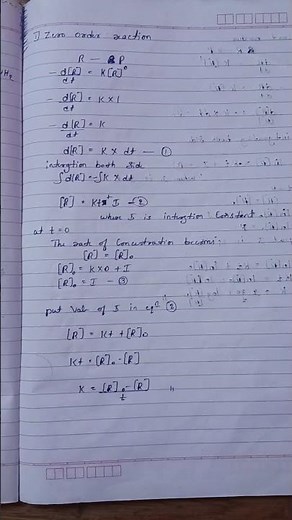 1) Zero order reaction
R — P
- d[R]/dt = K[R]⁰
- d[R]/dt = K × 1
- d[R]/dt = K
d[R] = K × dt — ①
intergtion both side
∫d[R] = -∫K × dt
[R] = Kt + I — ②
where I is intergtion Constant
at t = 0
The
of Concentration becoms
[R] = [R]₀
[R]₀ = K × 0 + I
[R]₀ = I — ③
put Val of I in eqⁿ ②
[R] = Kt + [R]₀
Kt = [R]₀ - [R]
K = [R]₀ - [R]/t